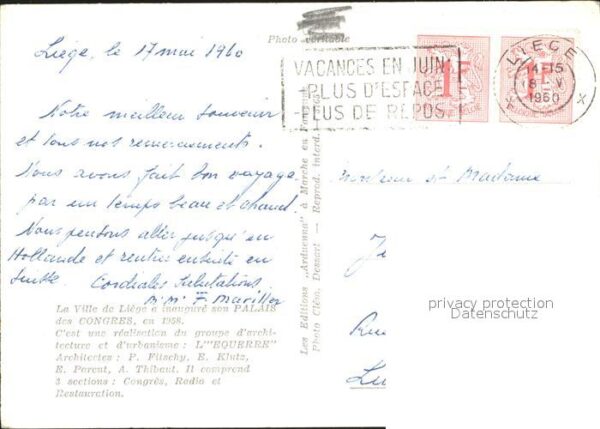 Photo véritable
Liège, le 17 mai 1960
VACANCES EN JUIN
PLUS D'ESPACE
PLUS DE REPOS
1F
1F
LIEGE
14-15
18-V
1960
X X
Notre meilleur souvenir
et tous nos remerciements.
Nous avons fait bon voyage
par un temps beau et chaud.
Nous pensons aller jusqu'en
Hollande et rentrer ensuite en
Suisse. Cordiales Salutations
F. Mariller
Monsieur et Madame
Je
Rue
Lu
privacy protection
Datenschutz
Les Editions "Arduenna" à Marche en Famenne
Photo Cléo, Dessart — Reprod. interd.
La Ville de Liège a inauguré son PALAIS
des CONGRES, en 1958.
C'est une réalisation du groupe d'archi-
tecture et d'urbanisme : L'"EQUERRE"
Architectes : P. Fitschy, E. Klutz,
E. Parent, A. Thibaut. Il comprend
3 sections : Congrès, Radio et
Restauration.